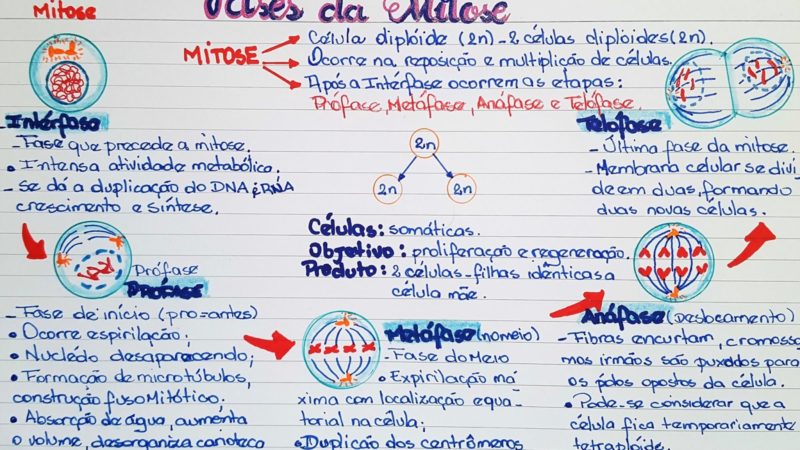 Fases da Mitose
Mitose
MITOSE
Célula diplóide (2n) - 2 células diplóides (2n).
Ocorre na reposição e multiplicação de células.
Após a Intérfase ocorrem as etapas:
Prófase, Metáfase, Anáfase e Telófase.
Intérfase
- Fase que precede a mitose.
• Intensa atividade metabólica.
- Se dá a duplicação do DNA e RNA
crescimento e síntese.
Prófase
PRÓFASE
- Fase de início (pro=antes)
• Ocorre espirilação;
• Nucléolo desaparecendo;
• Formação de microtúbulos,
construção fuso Mitótico.
• Absorção de água, aumenta
o volume, desorganiza carioteca
2n
2n
2n
Células: somáticas.
Objetivo: proliferação e regeneração.
Produto: 2 células-filhas idênticas a
célula mãe.
Metáfase (no meio)
- Fase do Meio
• Expirilação má
xima com localização equa-
torial na célula;
• Duplicão dos centrômeros
Anáfase (deslocamento)
- Fibras encurtam, cromosso
mos irmãos são puxados para
os pólos opostos da célula.
• Pode-se considerar que a
célula fica temporariamente
tetraplóide.
Telófase
- Última fase da mitose.
- Membrana celular se divi
de em duas, formando
duas novas células.